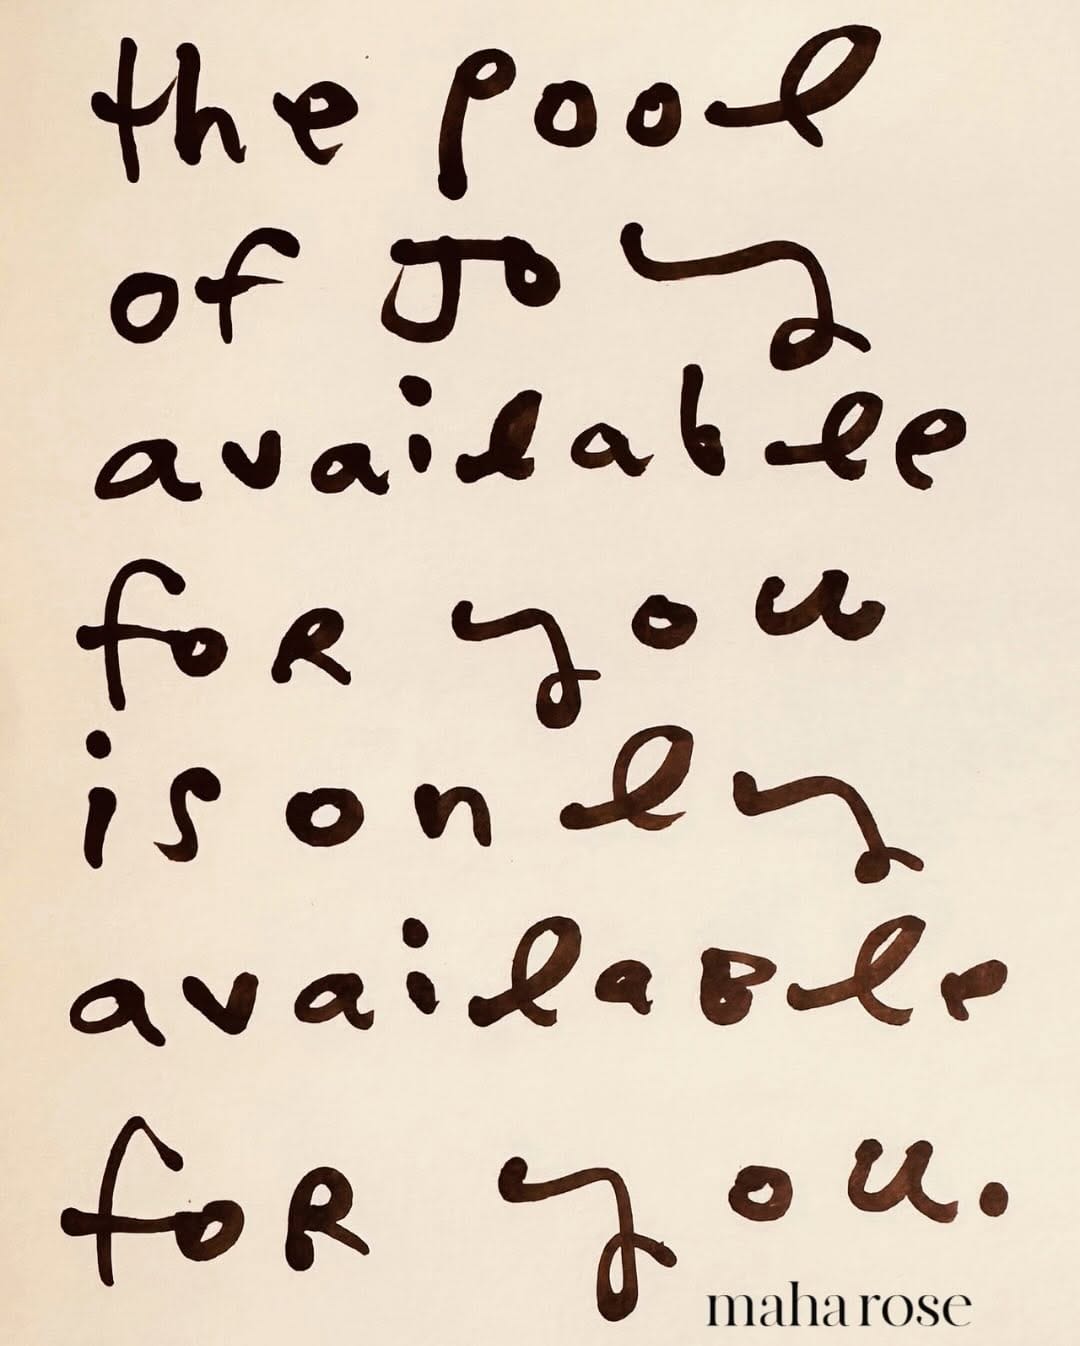 the pool
of Joy
available
foR you
is only
availaBle
foR you.
maha rose